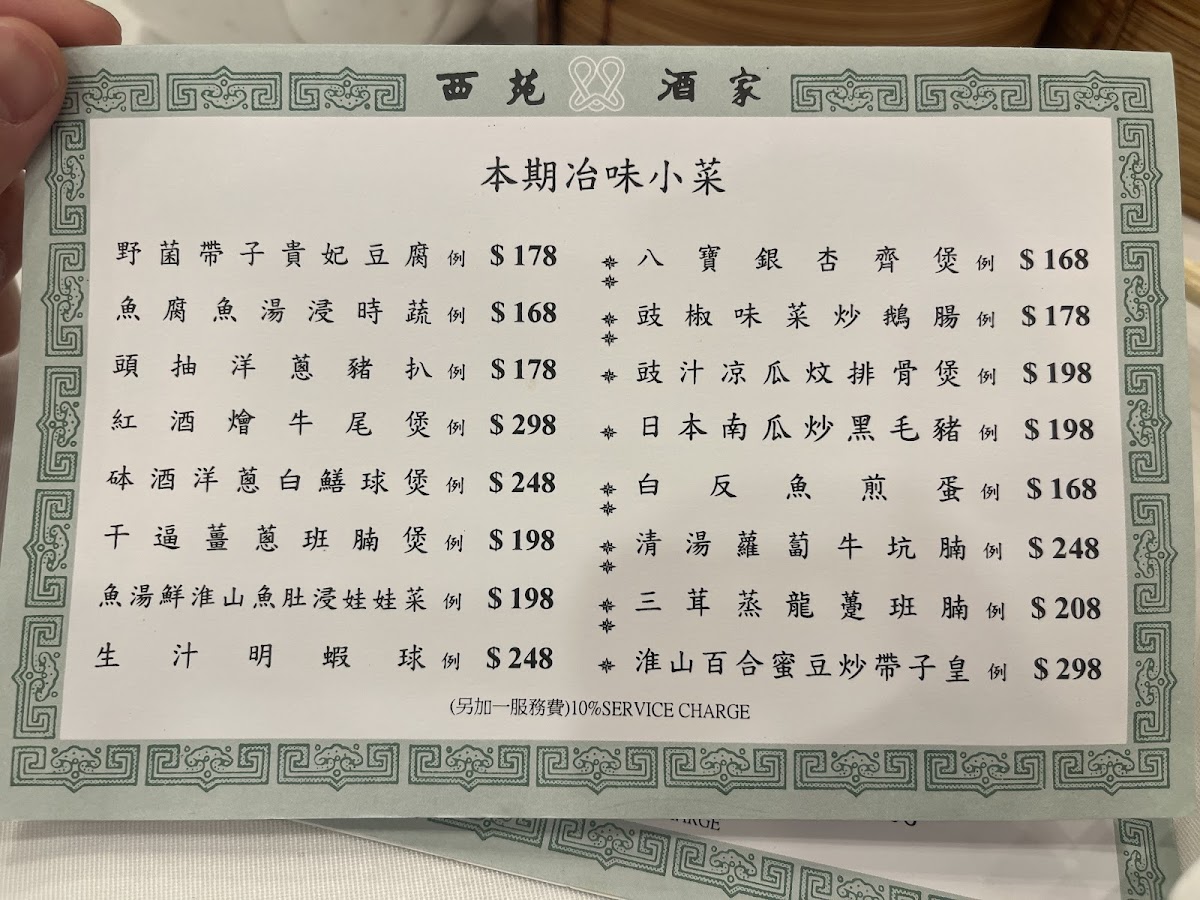 西苑酒家
本期冶味小菜
野菌帶子貴妃豆腐 例 $178
魚腐魚湯浸時蔬 例 $168
頭抽洋蔥豬扒 例 $178
紅酒燴牛尾煲 例 $298
砵酒洋蔥白鱔球煲 例 $248
干逼薑蔥班腩煲 例 $198
魚湯鮮淮山魚肚浸娃娃菜 例 $198
生汁明蝦球 例 $248
八寶銀杏齊煲 例 $168
豉椒味菜炒鵝腸 例 $178
豉汁凉瓜炆排骨煲 例 $198
日本南瓜炒黑毛豬 例 $198
白反魚煎蛋 例 $168
清湯蘿蔔牛坑腩 例 $248
三茸蒸龍躉班腩 例 $208
淮山百合蜜豆炒帶子皇 例 $298
(另加一服務費)10%SERVICE CHARGE
CHARGE